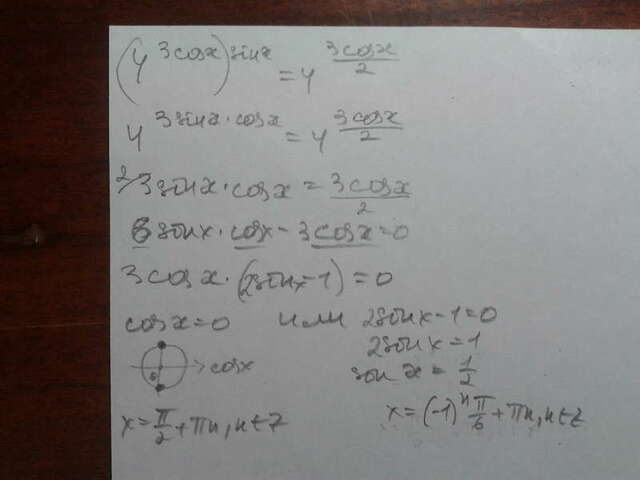 (4^(3cosx))^(sinx) = 4^(3cosx/2)
4^(3sinx·cosx) = 4^(3cosx/2)
2/ 3sinx·cosx = 3cosx/2
6sinx·cosx - 3cosx=0
3cosx·(2sinx-1)=0
cosx=0 или 2sinx-1=0
2sinx=1
cosx sinx = 1/2
x=π/2+πn, n∈Z x=(-1)^n π/6+πn, n∈Z